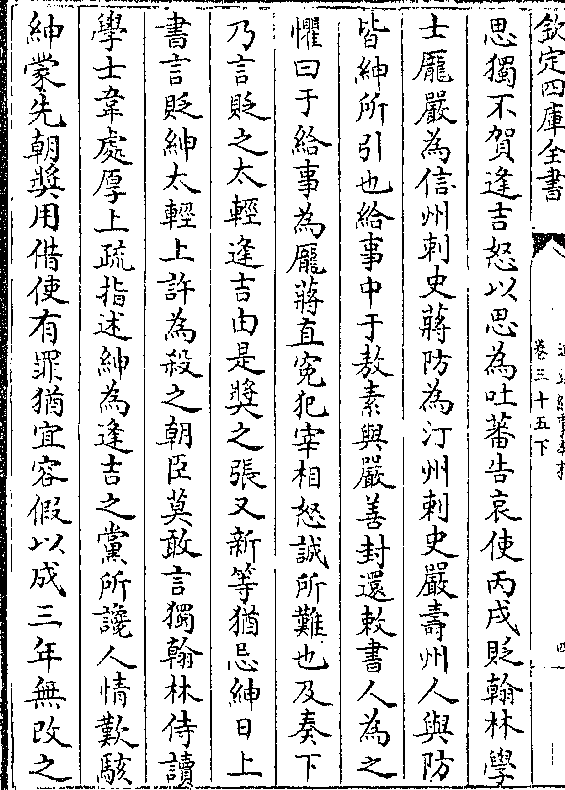 欽定四庫全書
卷三十五下
四
思獨不賀逢吉怒以思為吐蕃告哀使丙戌貶翰林學
士龐嚴為信州刺史蔣防為汀州刺史嚴壽州人與防
皆紳所引也給事中于敖素與嚴善封還敕書人為之
懼曰于給事為龐蔣直寃犯宰相怒誠所難也及奏下
乃言貶之太輕逢吉由是奬之張又新等猶忌紳日上
書言貶紳太輕上許為殺之朝臣莫敢言獨翰林侍讀
學士韋處厚上疏指述紳為逢吉之黨所讒人情歎駭
紳蒙先朝奬用借使有罪猶宜容假以成三年無改之